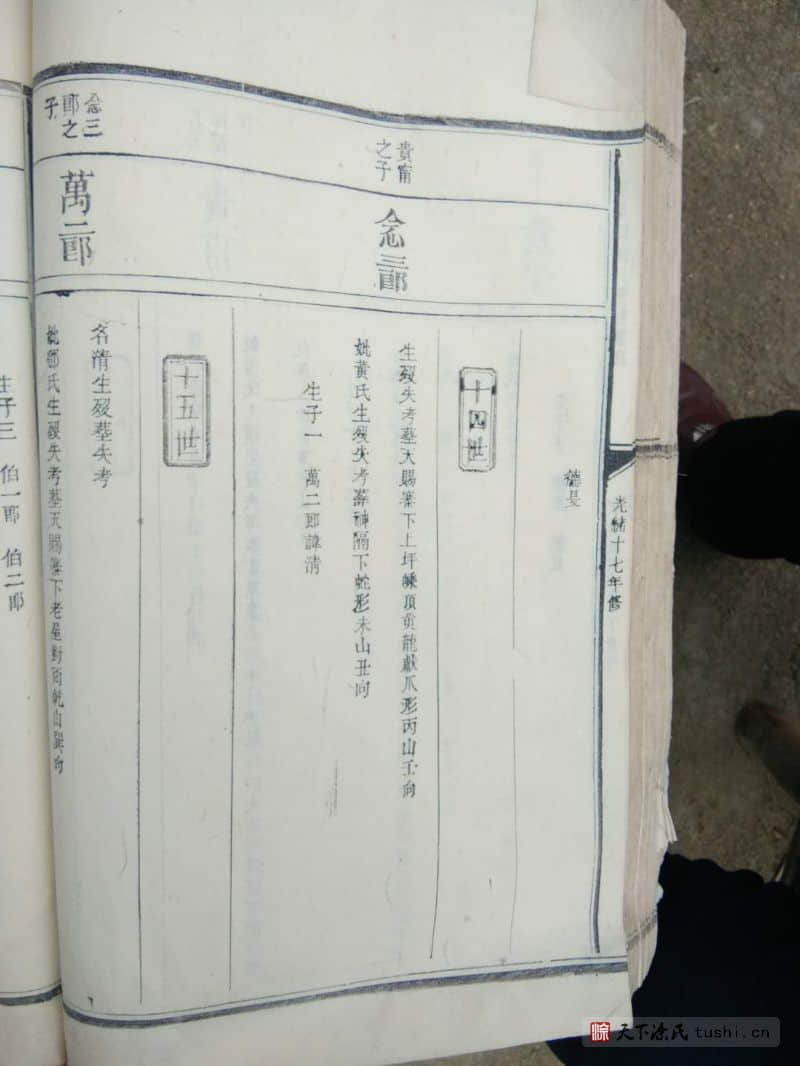 光緒十七年修
德旻
十四世
貴甯之子
念三郎
生歿失考墓天賜寨下上坪
頂貢龍獻爪形丙山壬向
妣黃氏生歿失考葬神隔下蛇形未山丑向
生子一 萬二郎諱清
十五世
念三郎之子
萬二郎
名清生歿墓失考
妣鄧氏生歿失考墓天賜寨下老屋對面乾山巽向
生子三 伯一郎 伯二郎
天下涂氏 tushi.cn